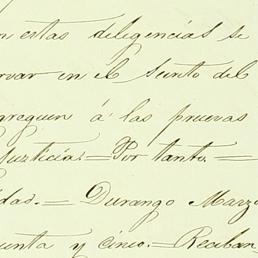 n estas deligencias se
ervar en el Sunto del
greguen á las pruevas
Justicia.=Por tanto.=
idad.=Durango Marzo
uenta y cinco.=Reciban